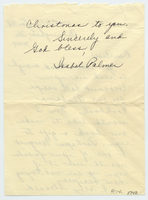 Christmas to you.
Sincerely and
God bless,
Isabel Palmer